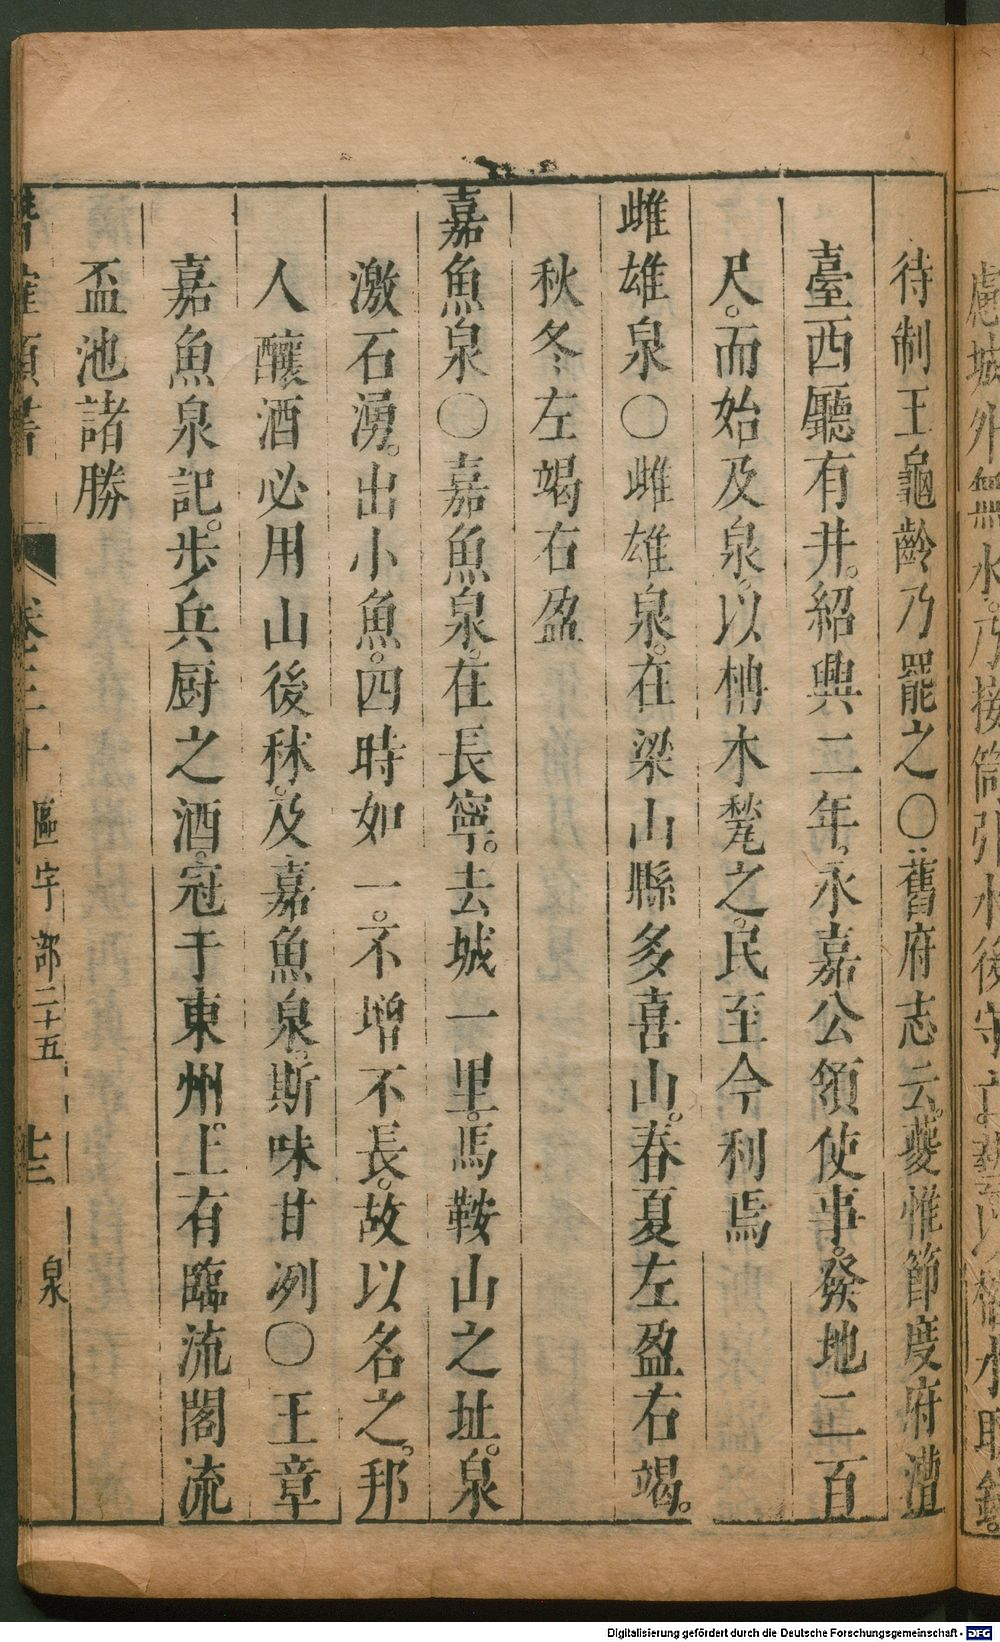 待制王龜齡乃罷之〇舊府志云。夔惟節度府漕
臺西廳有井。紹興二年。永嘉公領使事。發地二百
尺。而始及泉。以楠木甃之。民至今利焉
雌雄泉〇雌雄泉。在梁山縣多喜山。春夏左盈右竭。
秋冬左竭右盈
嘉魚泉〇嘉魚泉。在長寧。去城一里。馬鞍山之址。泉
激石湧。出小魚。四時如一。不增不長。故以名之。邦
人釀酒必用山後秫。及嘉魚泉。斯味甘冽〇王章
嘉魚泉記。步兵厨之酒。冠于東州。上有臨流閣流
盃池諸勝
卷三十 區宇部二十五 十三 泉
Digitalisierung gefördert durch die Deutsche Forschungsgemeinschaft - DFG